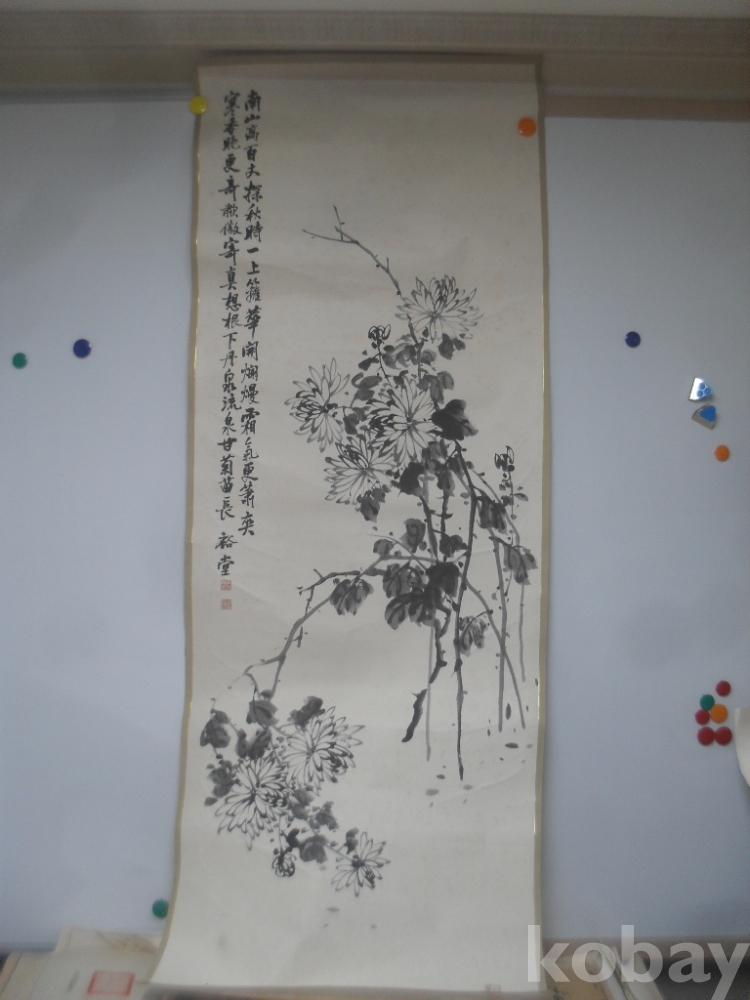 南山高百丈採秋時一上籬華開爛熳霜氣更蕭爽
寒香晚更奇歌傲寄真想根下丹泉流泉甘菊苗長 裕堂
kobay